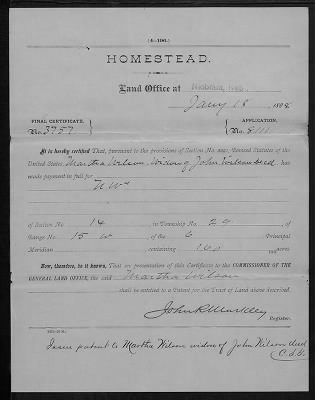 (4—196.)
HOMESTEAD.
Land Office at Niobrara, Neb.
Jany 18 189
FINAL CERTIFICATE. APPLICATION.
No. 3757 No.
It is hereby certified That, pursuant to the provisions of Section No. 2291, Revised Statutes of the
United States, Martha Wilson, widow of John Wilson decd, has
made payment in full for
N W¼
of Section No. 14 in Township No. 29
of Range No. 15 W of the 6 Principal
Meridian containing 160 acres
Now, therefore, be it known, That on presentation of this Certificate to the COMMISSIONER OF THE
GENERAL LAND OFFICE, the said Martha Wilson
shall be entitled to a Patent for the Tract of Land above described.
Register.
Issue patent to Martha Wilson widow of John Wilson decd